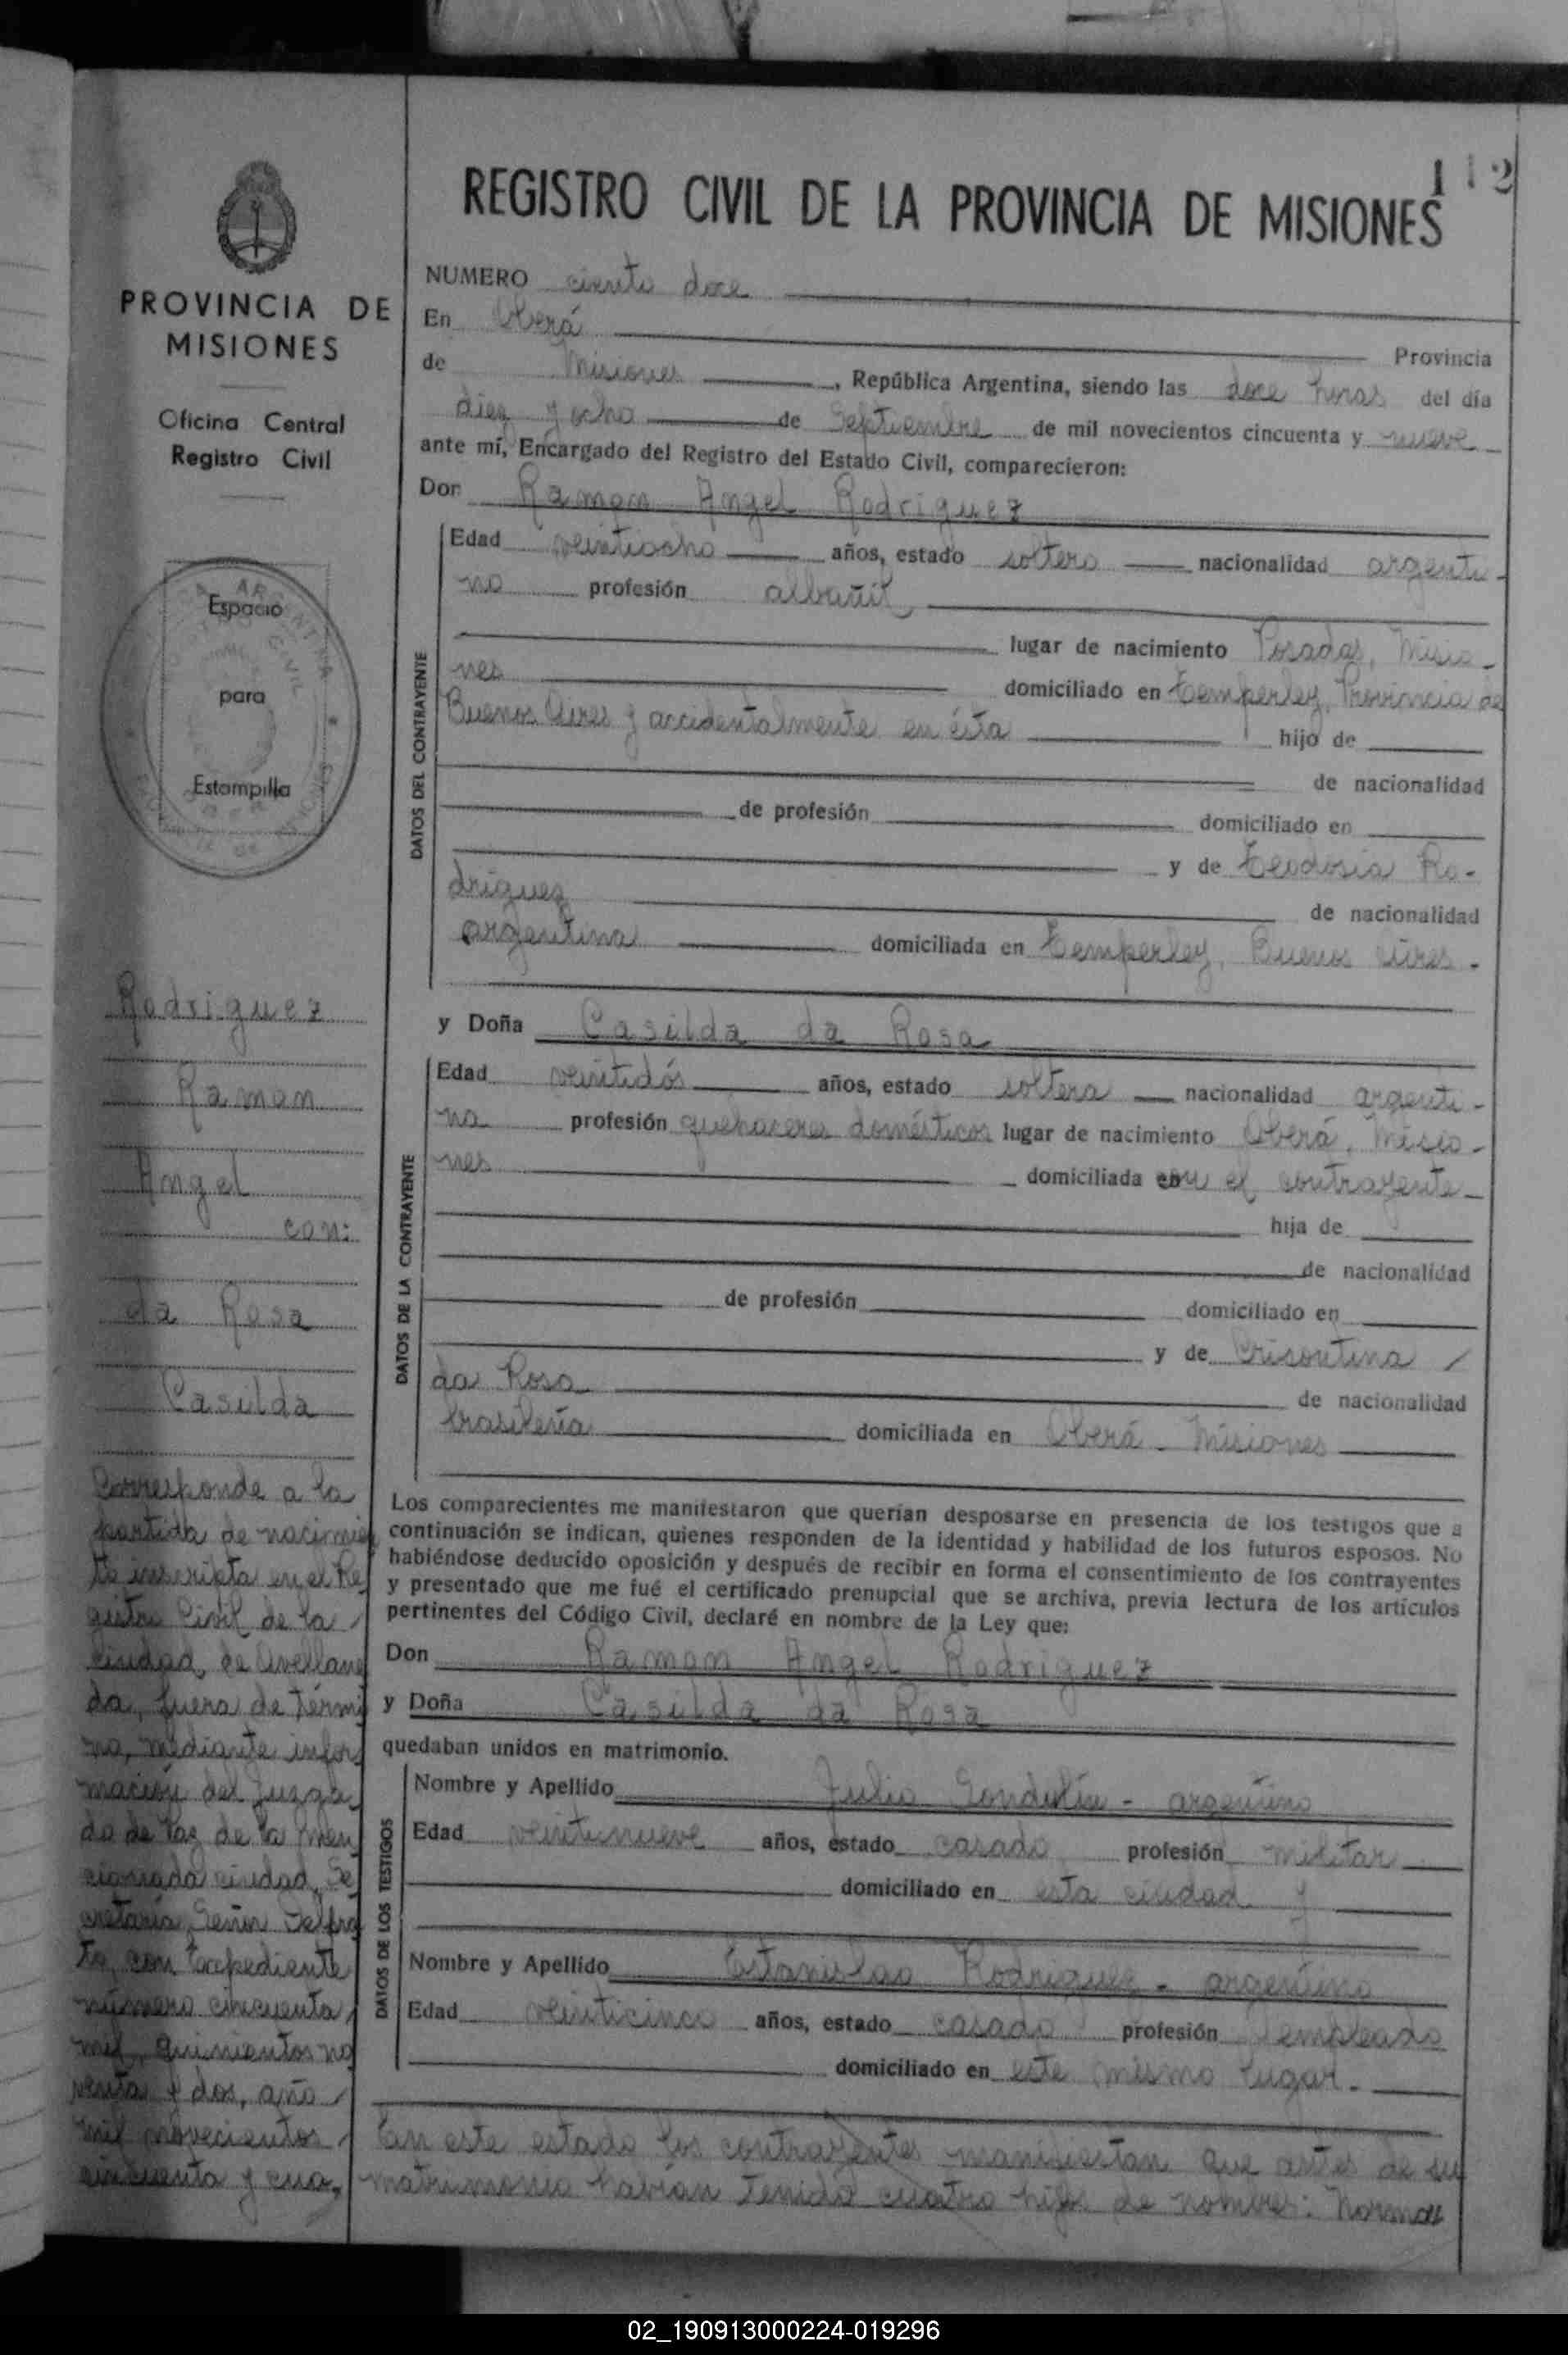 112
REGISTRO CIVIL DE LA PROVINCIA DE MISIONES
PROVINCIA DE
MISIONES
Oficina Central
Registro Civil
Espacio
para
Estampilla
Rodriguez
Ramon
Angel
con:
da Rosa
Casilda
Corresponde a la
partida de nacimien
to inscripta en el Re
gistro Civil de la
Ciudad de Avellane
da, fuera de térmi
no, mediante infor
mación del Juzga
do de Paz de la men
cionada ciudad, Se
cretaría Señor
to, con Expediente
número cincuenta
mil, quinientos no
venta y dos, año
mil novecientos
cincuenta y cua-
NUMERO ciento doce
En Oberá Provincia
de Misiones, República Argentina, siendo las doce horas del día
diez y ocho de Septiembre de mil novecientos cincuenta y nueve
ante mí, Encargado del Registro del Estado Civil, comparecieron:
Don Ramon Angel Rodriguez
DATOS DEL CONTRAYENTE
Edad veintiocho años, estado soltero nacionalidad argenti-
no profesión albañil
lugar de nacimiento Posadas, Misio-
nes domiciliado en Temperley, Provincia de
Buenos Aires y accidentalmente en ésta hijo de
de nacionalidad
de profesión domiciliado en
y de Teodosia Ro-
driguez de nacionalidad
argentina domiciliada en Temperley, Buenos Aires.
y Doña Casilda da Rosa
DATOS DE LA CONTRAYENTE
Edad veintidós años, estado soltera nacionalidad argenti-
na profesión quehaceres domésticos lugar de nacimiento Oberá, Misio-
nes domiciliada con el contrayente
hija de
de nacionalidad
de profesión domiciliado en
y de Crisontina
da Rosa de nacionalidad
brasileña domiciliada en Oberá - Misiones
Los comparecientes me manifestaron que querían desposarse en presencia de los testigos que a
continuación se indican, quienes responden de la identidad y habilidad de los futuros esposos. No
habiéndose deducido oposición y después de recibir en forma el consentimiento de los contrayentes
y presentado que me fué el certificado prenupcial que se archiva, previa lectura de los artículos
pertinentes del Código Civil, declaré en nombre de la Ley que:
Don Ramon Angel Rodriguez
y Doña Casilda da Rosa
quedaban unidos en matrimonio.
DATOS DE LOS TESTIGOS
Nombre y Apellido Julio - argentino
Edad veintinueve años, estado casado profesión militar
domiciliado en esta ciudad y
Nombre y Apellido Estanislao Rodriguez - argentino
Edad veinticinco años, estado casado profesión empleado
domiciliado en este mismo lugar.
En este estado los contrayentes manifiestan que antes de su
matrimonio habían tenido cuatro hijos de nombres: Norma
02_190913000224-019296